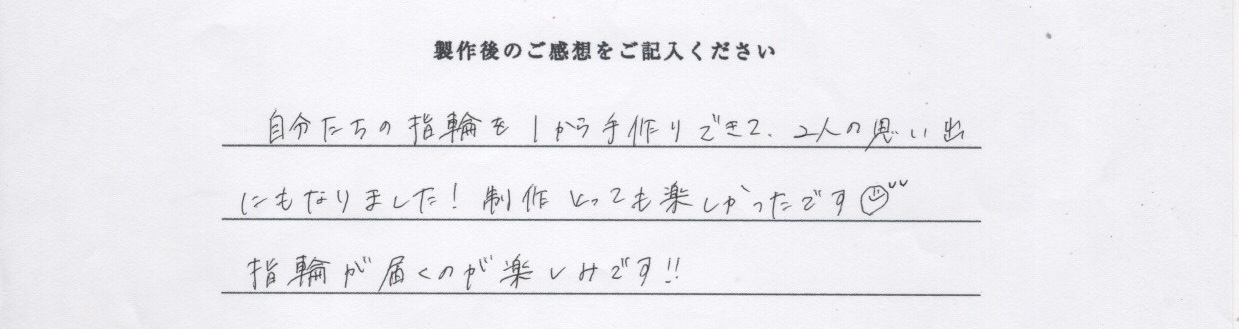 製作後のご感想をご記入ください
自分たちの指輪を1から手作りできて、2人の思い出
にもなりました!制作とっても楽しかったです☺
指輪が届くのが楽しみです!!